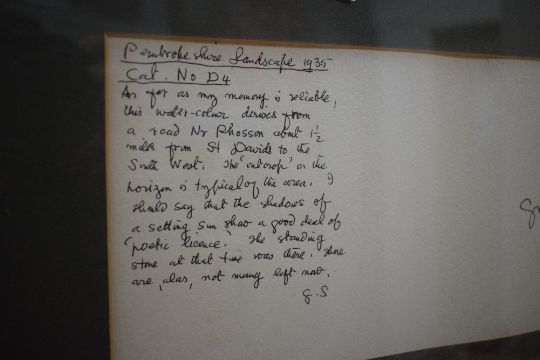 Pembrokeshire Landscape 1935
Cat. No D4
As far as my memory is reliable,
this water-colour derives from
a road Nr Rhosson about 1½
miles from St Davids to the
South West. The 'outcrop' on the
horizon is typical of the area. I
should say that the shadows of
a setting sun show a good deal of
'poetic licence'. The standing
stone at that time was there. There
are, alas, not many left now.
G.S